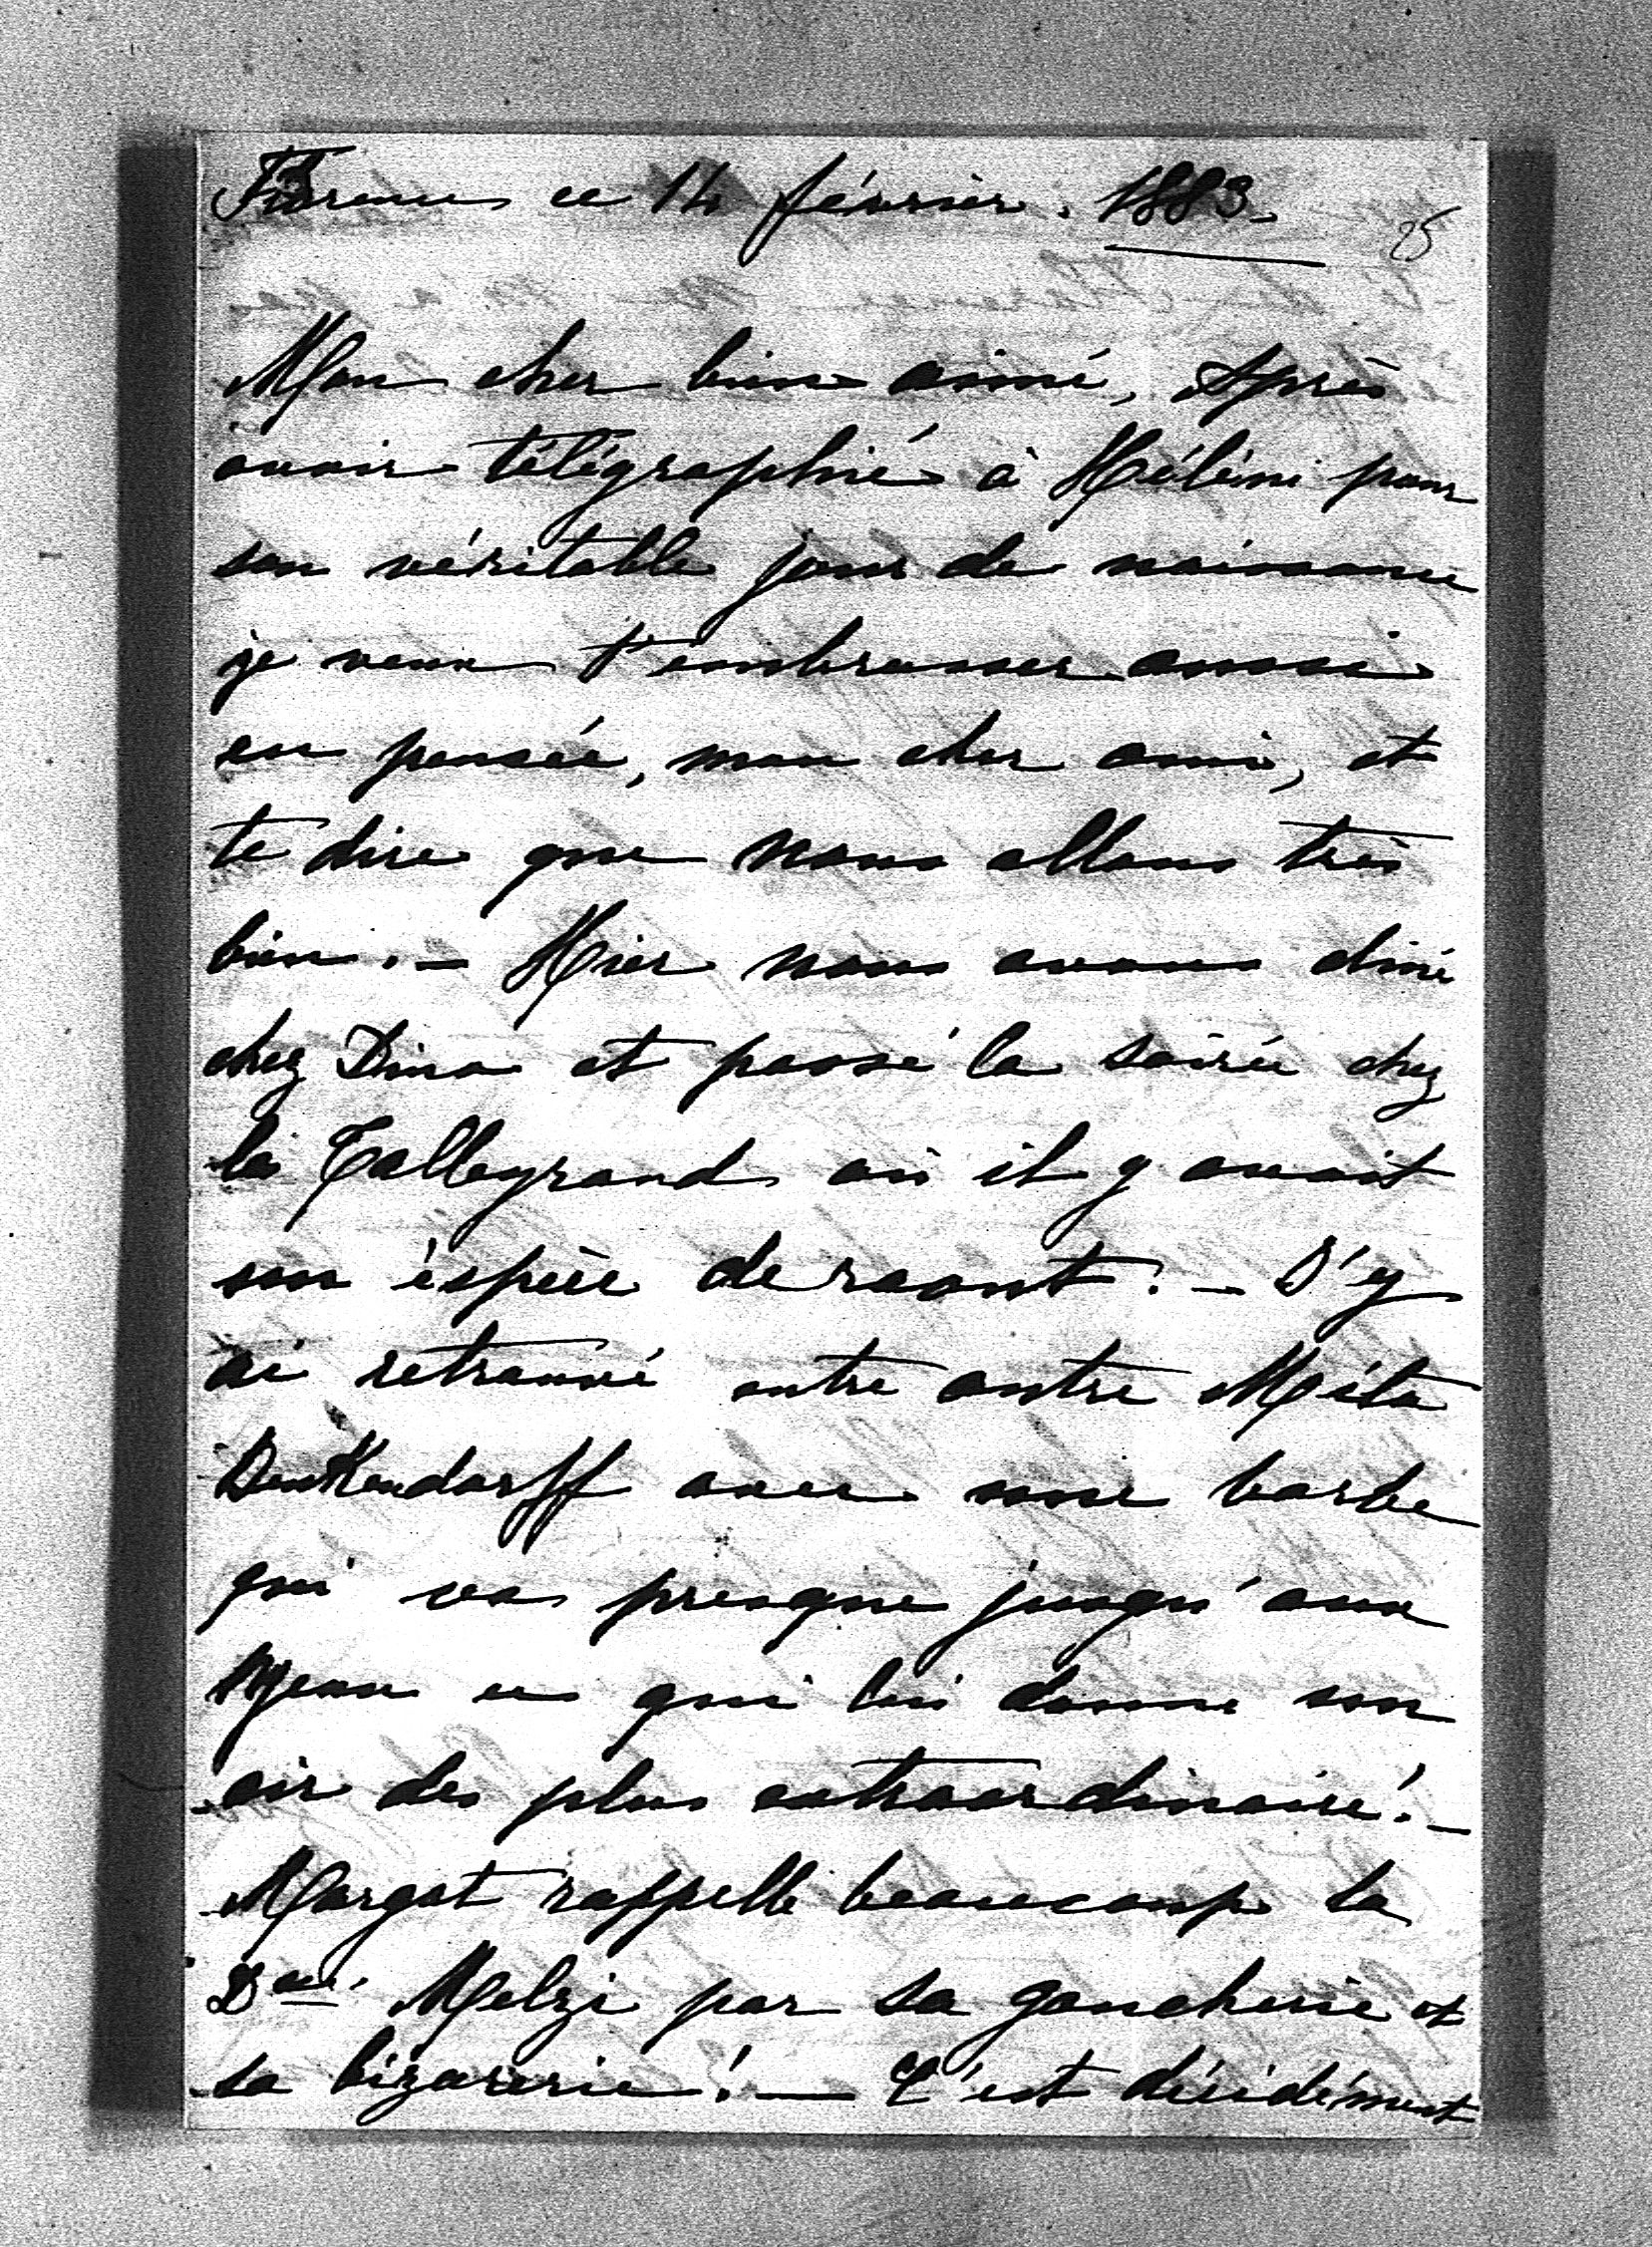 Florence ce 14 février. 1883_
25
Mon cher bien aimé, Après
avoir télégraphié à Hélène pour
son véritable jour de naissance
je veux t'embrasser aussi
en pensée, mon cher ami, et
te dire que nous allons très
bien. – Hier nous avons diné
chez Dino et passé la soirée chez
les Talleyrand où il y avait
une éspèce de raout. – J'y
ai retrouvé entre autre Méta
Benkendorff avec une barbe
qui va presque jusqu'aux
yeux ce qui lui donne un
air des plus extraordinaire! –
Margot rappelle beaucoup la
Dsse Melzi par sa gaucherie et
sa bizarerie! — C'est décidément